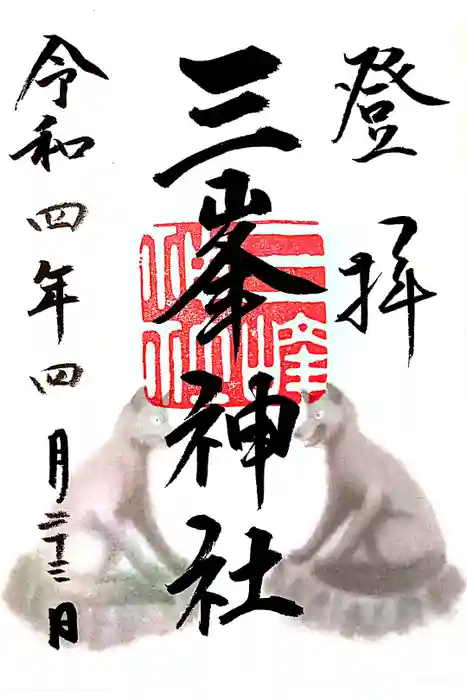 登拝
三峯神社
三峰神社
令和四年四月二十三日